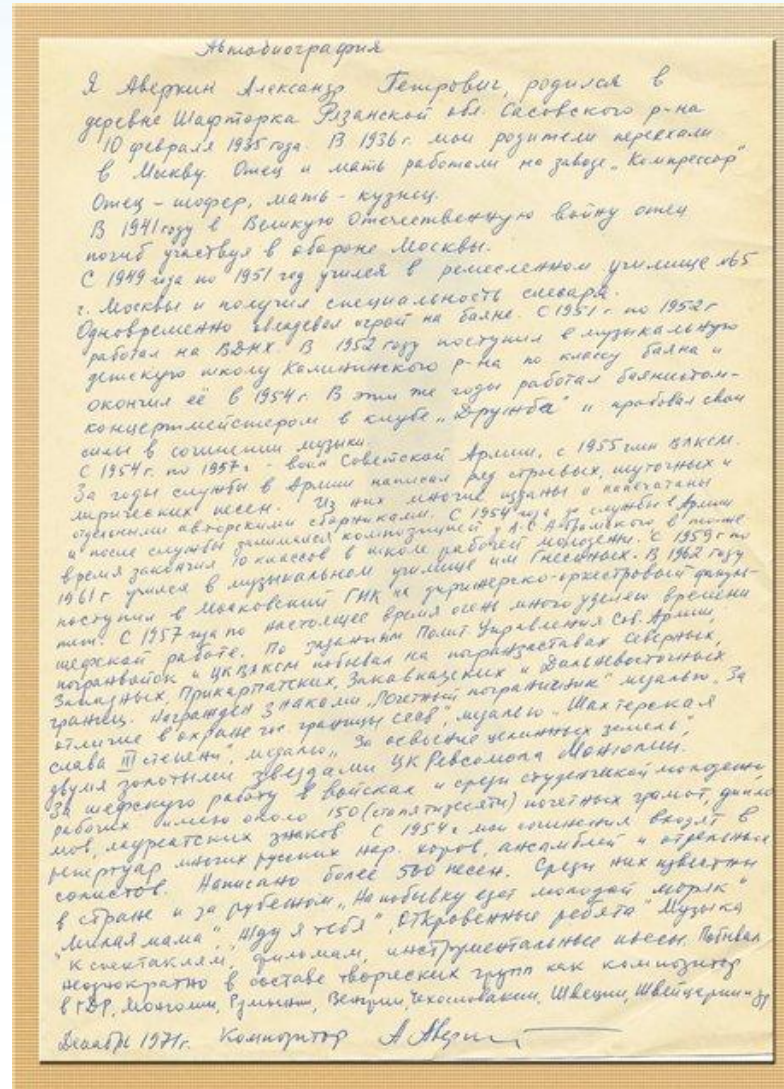 Автобиография
Я Аверкин Александр Петрович, родился в
деревне Шафторка Рязанской обл. Сасовского р-на
10 февраля 1935 года. В 1936 г. мои родители переехали
в Москву. Отец и мать работали на заводе „Компрессор"
Отец - шофер, мать - кузнец.
В 1941 году в Великую Отечественную войну отец
погиб участвуя в обороне Москвы.
С 1949 года по 1951 год учился в ремесленном училище №65
г. Москвы и получил специальность слесаря.
Одновременно овладевал игрой на баяне. С 1951 г. по 1952 г
работал на ВДНХ. В 1952 году поступил в музыкальную
детскую школу Калининского р-на по классу баяна и
окончил её в 1954 г. В эти же годы работал баянистом-
концертмейстером в клубе „Дружба" и пробовал свои
силы в сочинении музыки.
С 1954 г. по 1957 г - воин Советской Армии, с 1955 член ВЛКСМ.
За годы службы в Армии написал ряд строевых, шуточных и
лирических песен. Из них многие изданы и напечатаны
отдельными авторскими сборниками. С 1954 года до службы в Армии
и после службы занимался композицией у А.С. Абрамского в то же
время закончил 10 классов в школе рабочей молодежи. С 1959 г по
1961 г. учился в музыкальном училище им Гнесиных. В 1962 году
поступил в Московский ГИК на дирижерско-оркестровый факуль-
тет. С 1957 года по настоящее время очень много уделяю времени
шефской работе. По заданиям Полит Управления Сов. Армии,
погранвойск и ЦК ВЛКСМ побывал на погранзаставах Северных,
Западных, Прикарпатских, Закавказских и Дальневосточных
границ. Награжден знаками „Почетный пограничник" медалью „За
отличие в охране гос границы СССР", медалью „Шахтерская
слава III степени", медалью „За освоение целинных земель",
двумя золотыми звездами ЦК Ревсомола Монголии.
За шефскую работу в войсках и среди студенческой молодежи,
рабочих имею около 150 (стапятидесяти) почетных грамот, дипло
мов, лауреатских знаков. С 1954 г мои сочинения входят в
репертуар многих русских нар. хоров, ансамблей и отдельных
солистов. Написано более 500 песен. Среди них известны
в стране и за рубежом „На побывку едет молодой моряк"
"Милая мама", "Жду я тебя", "Откровенные ребята" Музыка
к спектаклям, фильмам, инструментальные пьесы. Побывал
неоднократно в составе творческих групп как композитор
в ГДР, Монголии, Румынии, Венгрии, Чехословакии, Швеции, Швейцарии и др
Декабрь 1971 г. Композитор А Аверкин